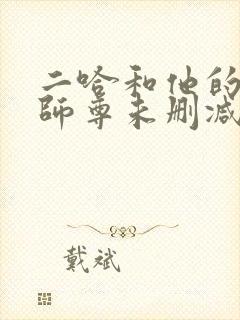 二哈和他的
师尊未删减
戴斌